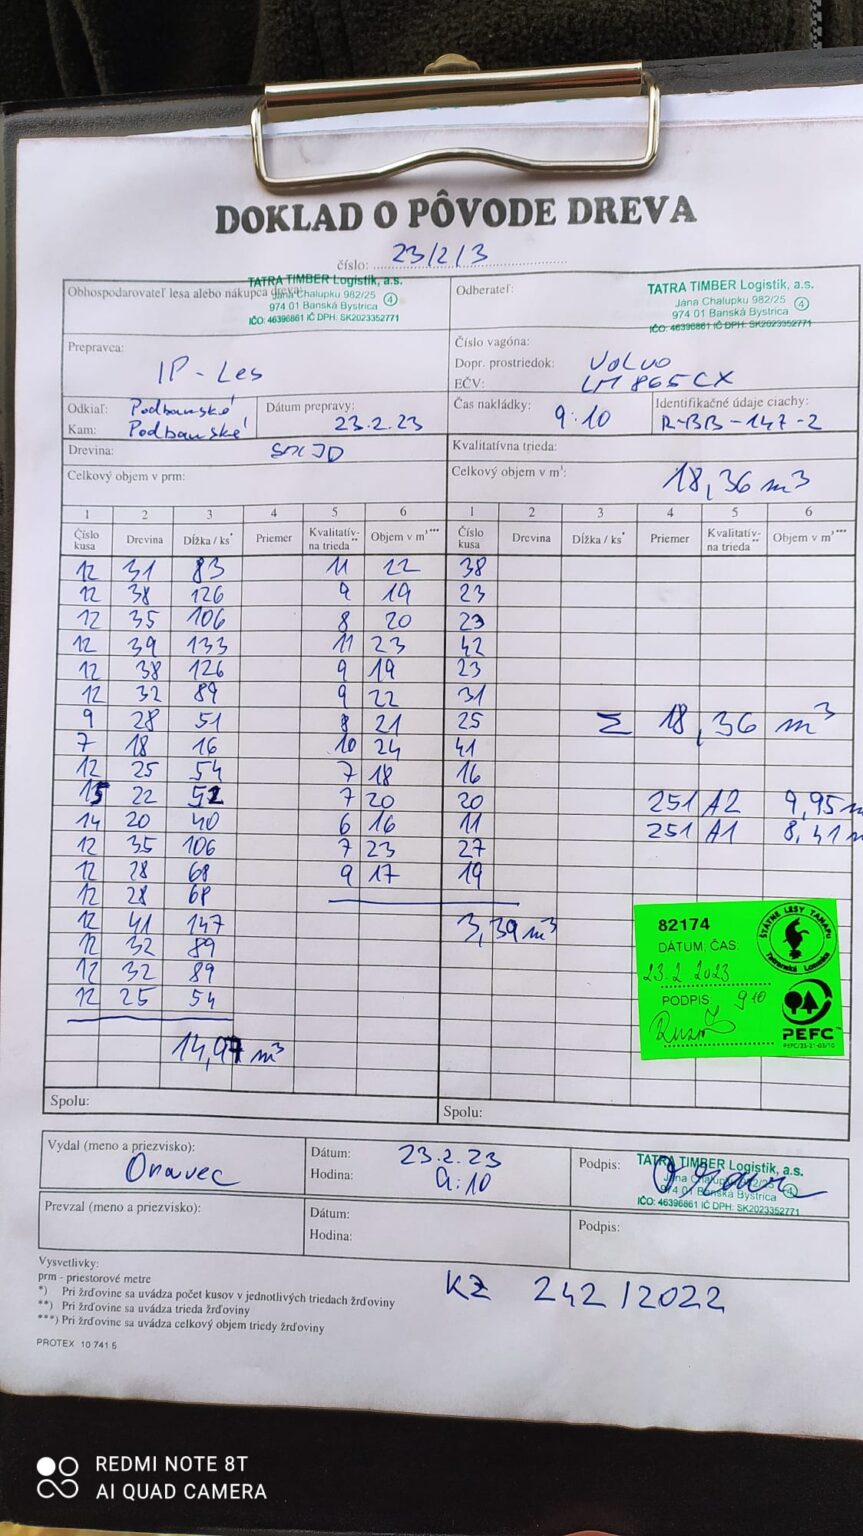 DOKLAD O PÔVODE DREVA
číslo: 23/2/3
Obhospodarovateľ lesa alebo nákupca dreva:
TATRA TIMBER Logistik, a.s.
Jána Chalupku 982/25
974 01 Banská Bystrica
IČO: 46396861 IČ DPH: SK2023352771
4
Odberateľ:
TATRA TIMBER Logistik, a.s.
Jána Chalupku 982/25
974 01 Banská Bystrica
IČO: 46396861 IČ DPH: SK2023352771
4
Prepravca:
IP-Les
Číslo vagóna:
Dopr. prostriedok: Volvo
EČV: LM865CX
Odkiaľ: Podbanské
Kam: Podbanské
Dátum prepravy:
23.2.23
Čas nakládky:
9:10
Identifikačné údaje ciachy:
R-BB-147-2
Drevina: SM JD
Kvalitatívna trieda:
Celkový objem v prm:
Celkový objem v m³: 18,36 m³
1 2 3 4 5 6 1 2 3 4 5 6
Číslo kusa Drevina Dĺžka / ks* Priemer Kvalitatívna trieda** Objem v m³*** Číslo kusa Drevina Dĺžka / ks* Priemer Kvalitatívna trieda** Objem v m³***
12 31 83 11 22 38
12 38 126 9 19 23
12 35 106 8 20 23
12 39 133 11 23 42
12 38 126 9 19 23
12 32 89 9 22 31
9 28 51 8 21 25 Σ 18,36 m³
7 18 16 10 24 41
12 25 54 7 18 16
15 22 52 7 20 20 251 A2 9,95 m
14 20 40 6 16 11 251 A1 8,41 m
12 35 106 7 23 27
12 28 68 9 17 19
12 28 68
12 41 147 3,39 m³
12 32 89
12 32 89
12 25 54
14,97 m³
82174
DÁTUM, ČAS:
23.2.2023
9 10
PODPIS
ŠTÁTNE LESY TANAPU
Tatranská Lomnica
PEFC™
PEFC/23-21-03/10
Spolu:
Spolu:
Vydal (meno a priezvisko):
Onavec
Dátum: 23.2.23
Hodina: 9:10
Podpis:
TATRA TIMBER Logistik, a.s.
974 01 Banská Bystrica
IČO: 46396861 IČ DPH: SK2023352771
4
Prevzal (meno a priezvisko):
Dátum:
Hodina:
Podpis:
Vysvetlivky:
prm - priestorové metre
*) Pri žrďovine sa uvádza počet kusov v jednotlivých triedach žrďoviny
**) Pri žrďovine sa uvádza trieda žrďoviny
***) Pri žrďovine sa uvádza celkový objem triedy žrďoviny
KZ 242/2022
PROTEX 10 741 5
REDMI NOTE 8T
AI QUAD CAMERA